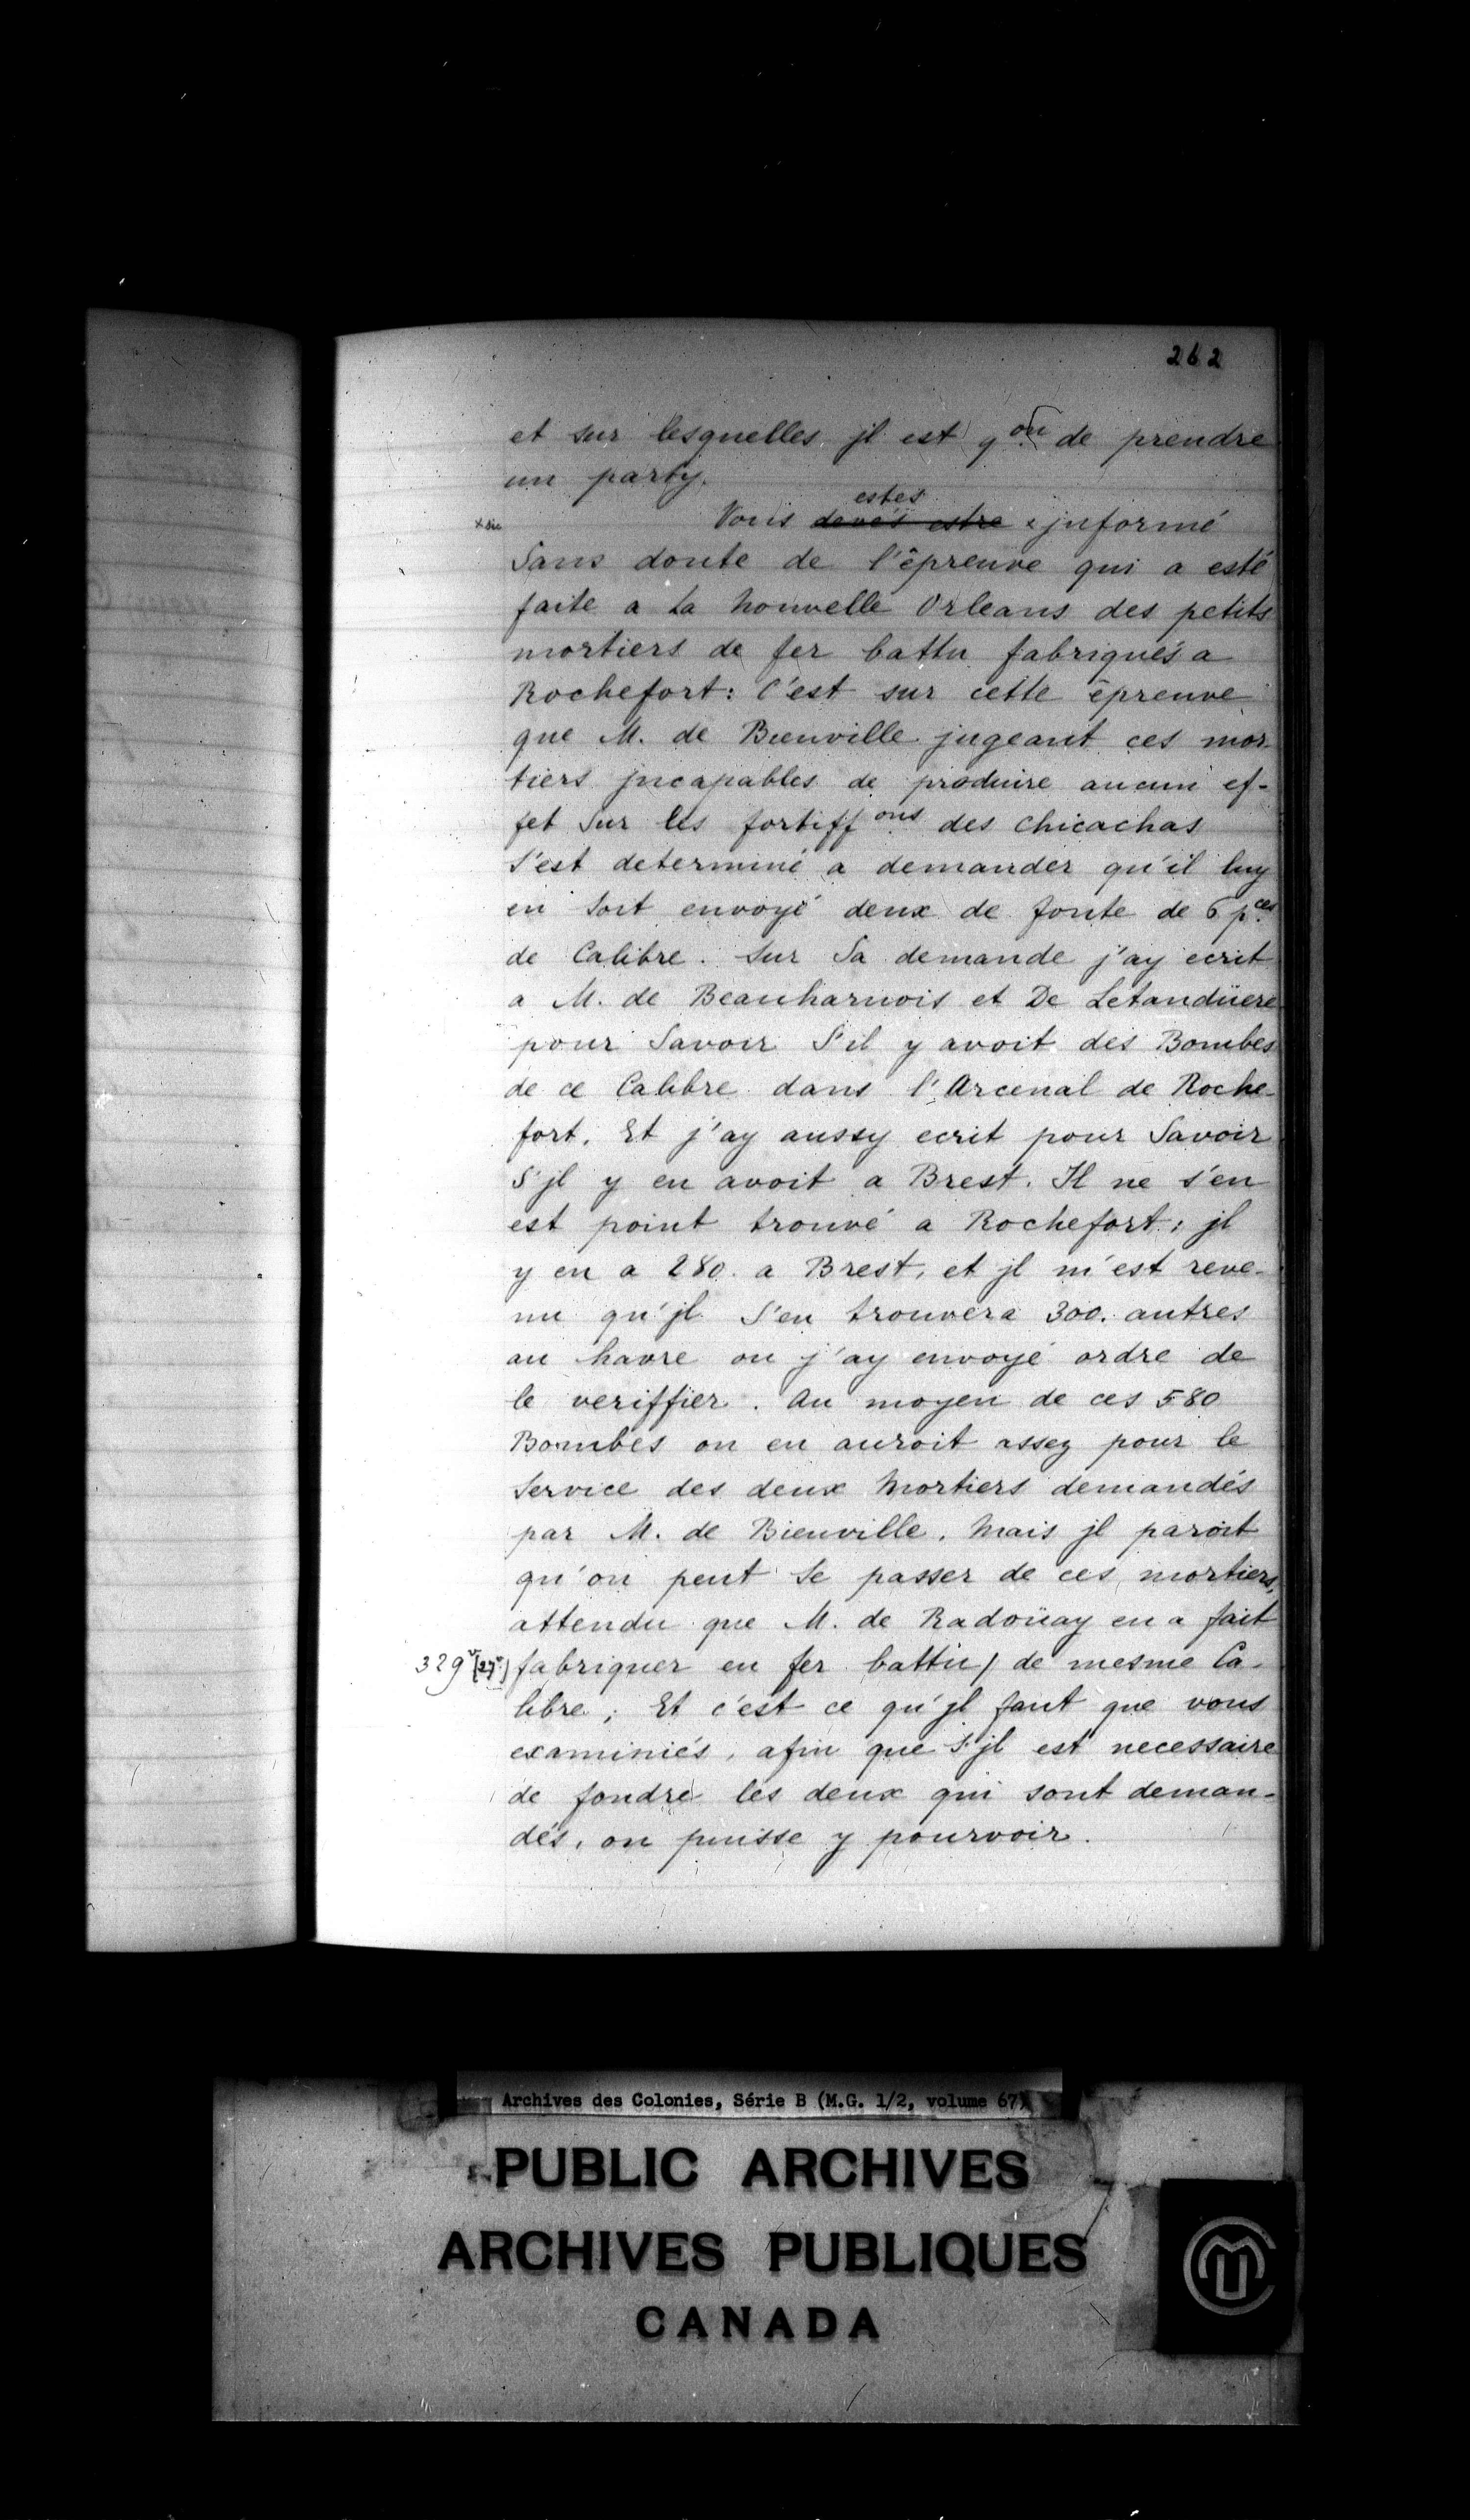 262
et sur lesquelles jl est q.on de prendre
un party.
estes
x sic Vous devés estre x jnformé
Sans doute de l'êpreuve qui a esté
faite a La Nouvelle Orleans des petits
mortiers de fer battu fabriqués a
Rochefort: C'est sur cette épreuve
que M. de Bienville jugeant ces mor-
tiers jncapables de produire aucun ef-
fet sur les fortiff.ons des Chicachas
S'est determiné a demander qu'il luy
en soit envoyé deux de fonte de 6 p.ces
de Calibre. Sur Sa demande j'ay ecrit
a M. de Beauharnois et De Letandüere
pour Savoir S'il y avoit des Bombes
de ce Calibre dans l'Arcenal de Roche-
fort. Et j'ay aussy ecrit pour Savoir
S'jl y en avoit a Brest. Il ne s'en
est point trouvé a Rochefort; jl
y en a 280. a Brest, et jl m'est reve-
nu qu'jl S'en trouvera 300. autres
au havre ou j'ay envoyé ordre de
le veriffier. Au moyen de ces 580
Bombes on en auroit assez pour le
Service des deux Mortiers demandés
par M. de Bienville. Mais jl paroit
qu'on peut Se passer de ces mortiers,
attendu que M. de Radoüay en a fait
329v (27v) fabriquer en fer battu/ de mesme Ca-
libre; Et c'est ce qu'jl faut que vous
examiniés, afin que S'jl est necessaire
de fondre les deux qui sont deman-
dés, on puisse y pourvoir.
Archives des Colonies, Série B (M.G. 1/2, volume 67)
PUBLIC ARCHIVES
ARCHIVES PUBLIQUES
CANADA